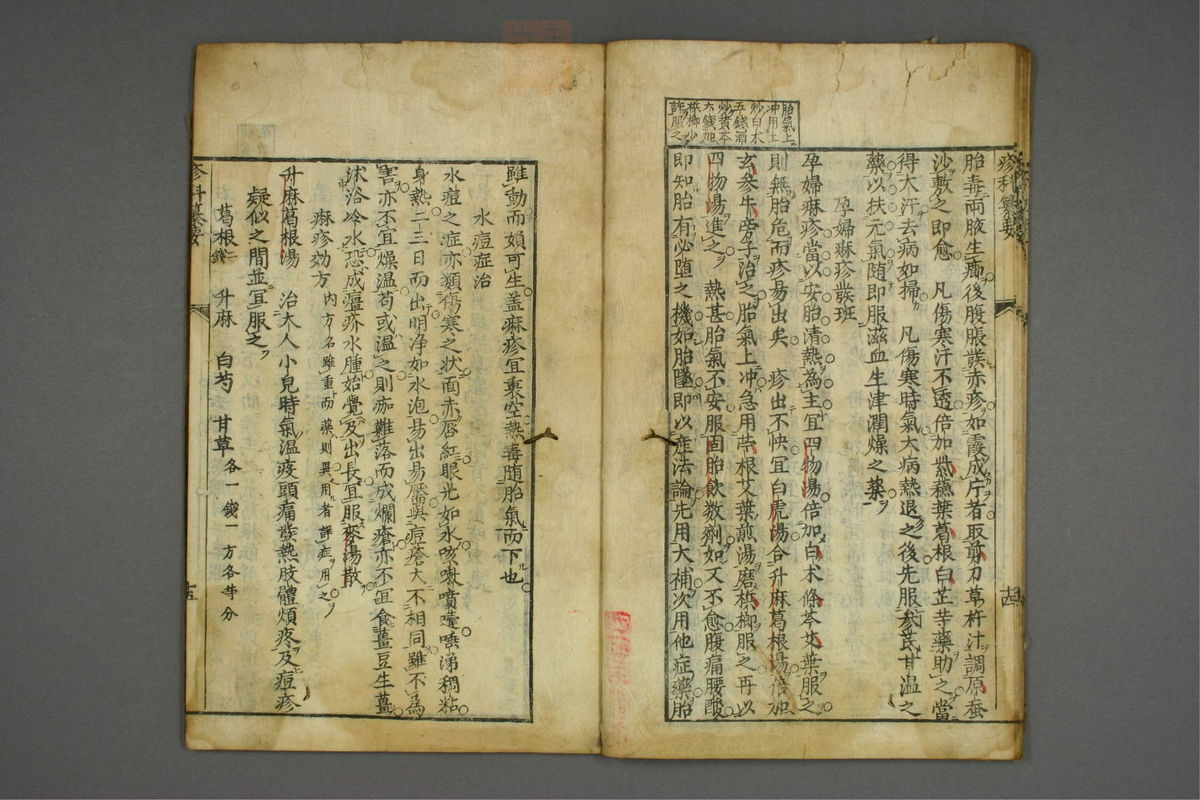 疹科纂要
胎毒兩腋生癤後腹脹發赤疹如霞成片者取剪刀草杵汁調原蚕
沙敷之即愈 凡傷寒汗不透倍加紫蘓葉葛根白芷等藥助之當
得大汗去病如掃 凡傷寒時氣大病熱退之後先服參芪甘温之
藥以扶元氣随即服滋血生津潤燥之藥
孕婦痳疹發班
孕婦痳疹當以安胎清熱為主宜四物湯倍加白术條芩艾葉服之
則無胎危而疹易出矣 疹出不快宜白虎湯合升麻葛根湯倍加
玄参牛旁子治之胎氣上冲急用苧根艾葉煎湯磨梹榔服之再以
四物湯進之 熱甚胎氣不安服固胎飲数劑如又不愈腹痛腰酸
即知胎有必堕之機如胎墜即以產法論先用大補次用他症藥胎
十四
胎氣上
冲用土
炒白术
五錢酒
炒黄芩
六錢加
梹榔少
許服之
雖動而頻可生盖麻疹宜裏空熱毒随胎氣而下也
水痘症治
水痘之症亦類傷寒之状面赤唇紅眼光如水咳嗽噴嚔唾涕稠粘
身熱二三日而出明净如水泡易出易靨與痘瘡大不相同雖不為
害亦不宜燥温苟或温之則痂難落而成爛瘡亦不宜食薑豆生薑
沐浴冷水恐成薑疥水腫始覺及出長宜服麥湯散
痳疹効方 内方名雖重而藥則異用者詳症用之
升麻葛根湯 治大人小兒時氣温疫頭痛發熱肢體煩疼及痘疹
疑似之間並宜服之
葛根二錢 升麻 白芍 甘草各一錢一方各等分
疹科纂要
十五